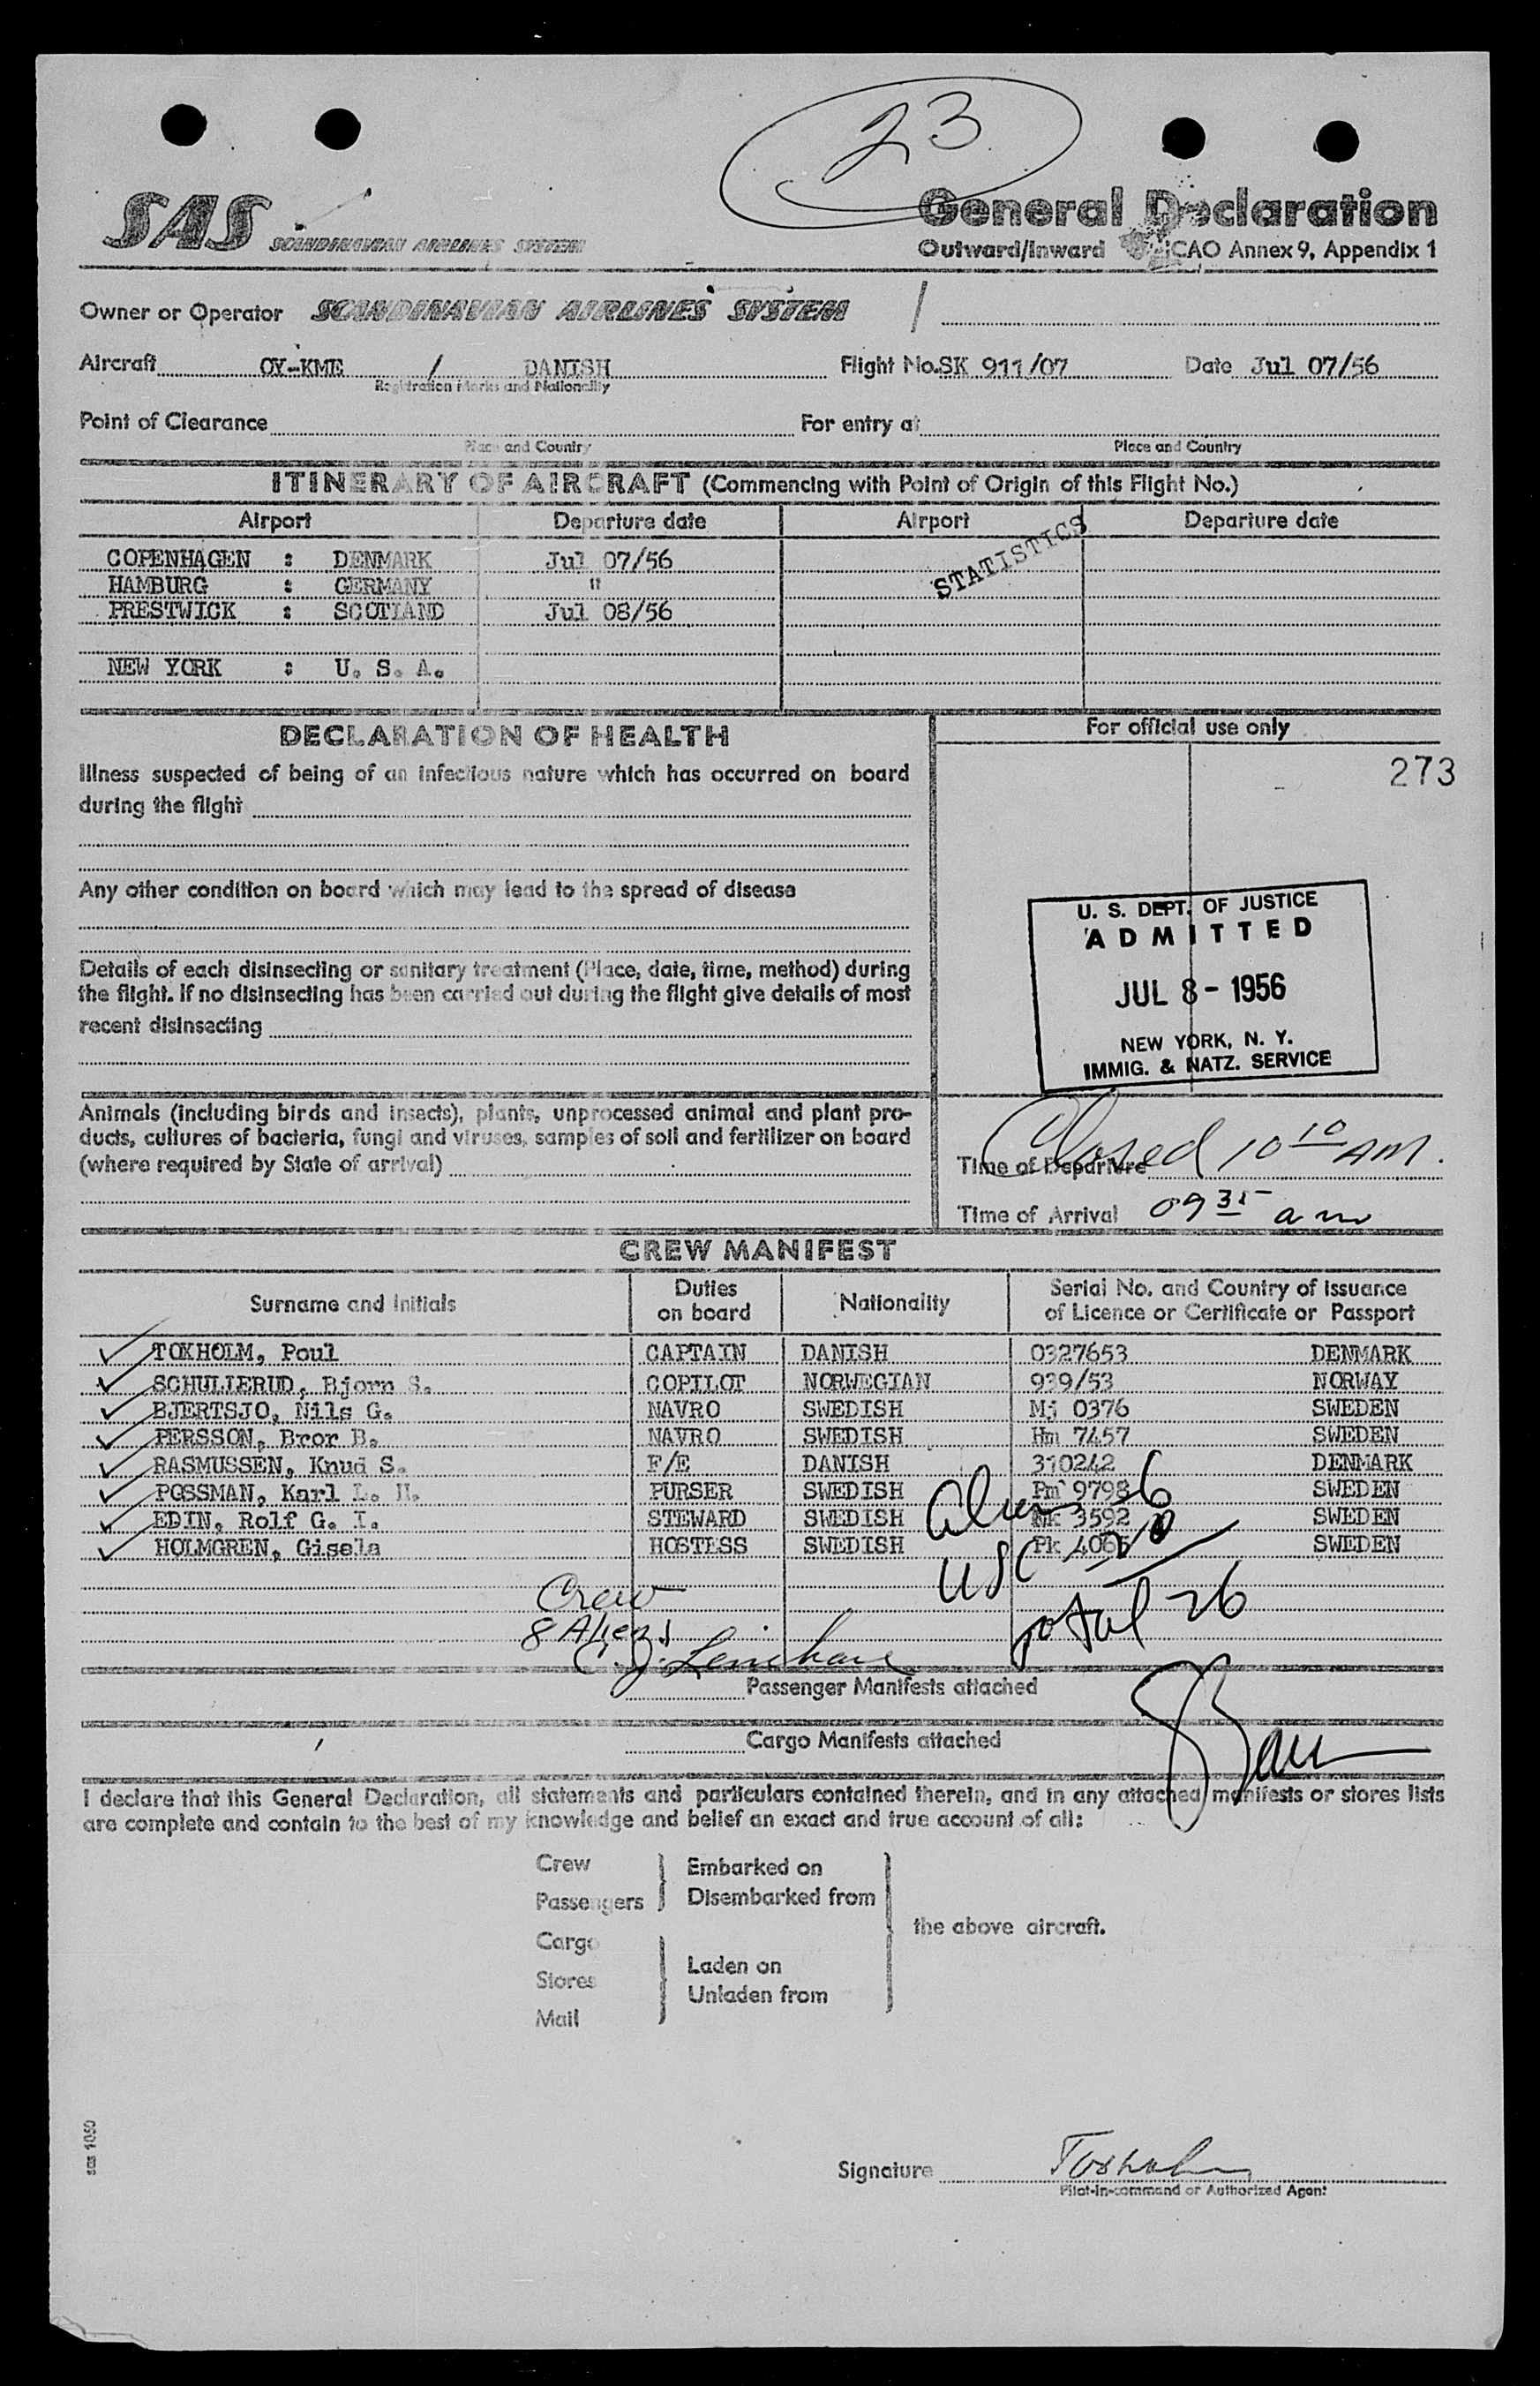 23
SAS SCANDINAVIAN AIRLINES SYSTEM
General Declaration
Outward/Inward ICAO Annex 9, Appendix 1
Owner or Operator SCANDINAVIAN AIRLINES SYSTEM /
Aircraft OY-KME / DANISH Flight No. SK 911/07 Date Jul 07/56
Registration Marks and Nationality
Point of Clearance For entry at
Place and Country Place and Country
ITINERARY OF AIRCRAFT (Commencing with Point of Origin of this Flight No.)
Airport Departure date Airport Departure date
STATISTICS
COPENHAGEN : DENMARK Jul 07/56
HAMBURG : GERMANY "
PRESTWICK : SCOTLAND Jul 08/56
NEW YORK : U. S. A.
DECLARATION OF HEALTH
Illness suspected of being of an infectious nature which has occurred on board
during the flight
Any other condition on board which may lead to the spread of disease
Details of each disinsecting or sanitary treatment (Place, date, time, method) during
the flight. If no disinsecting has been carried out during the flight give details of most
recent disinsecting
Animals (including birds and insects), plants, unprocessed animal and plant pro-
ducts, cultures of bacteria, fungi and viruses, samples of soil and fertilizer on board
(where required by State of arrival)
For official use only
273
U. S. DEPT. OF JUSTICE
ADMITTED
JUL 8 - 1956
NEW YORK, N. Y.
IMMIG. & NATZ. SERVICE
Closed 10 10 AM.
Time of Departure
Time of Arrival 09 35 am
CREW MANIFEST
Surname and Initials Duties on board Nationality Serial No. and Country of Issuance of Licence or Certificate or Passport
TOXHOLM, Poul CAPTAIN DANISH 0327653 DENMARK
SCHULLERUD, Bjorn S. COPILOT NORWEGIAN 939/53 NORWAY
BJERTSJO, Nils G. NAVRO SWEDISH Mj 0376 SWEDEN
PERSSON, Bror B. NAVRO SWEDISH Hm 7457 SWEDEN
RASMUSSEN, Knud S. F/E DANISH 310242 DENMARK
POSSMAN, Karl L. H. PURSER SWEDISH Pm 9798 SWEDEN
EDIN, Rolf G. I. STEWARD SWEDISH 3592 SWEDEN
HOLMGREN, Gisela HOSTESS SWEDISH Pk 4065 SWEDEN
USC 20
Total 26
Crew
8 Aliens
Passenger Manifests attached
Cargo Manifests attached
I declare that this General Declaration, all statements and particulars contained therein, and in any attached manifests or stores lists
are complete and contain to the best of my knowledge and belief an exact and true account of all:
Crew
Passengers
Embarked on
Disembarked from
Cargo
Stores
Mail
Laden on
Unladen from
the above aircraft.
sas 1050
Signature Toxholm
Pilot-in-command or Authorized Agent